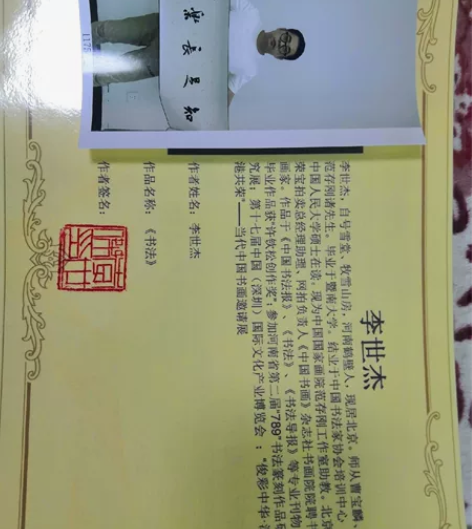 李世杰
李世杰，自号雪堂、牧雪山房，河南鹤壁人，现居北京。师从曹宝麟、
范存刚诸先生。毕业于暨南大学，结业于中国书法家协会培训中心，
中国人民大学硕士在读，现为中国国家画院范存刚工作室助教。北京
荣宝拍卖总经理助理、网拍负责人《中国书画》杂志社书画院院聘书
画家，作品于《中国书法报》、《书法》、《书法导报》等专业刊物
毕业作品获“许钦松创作奖”；参加河南省第二届“789”书法篆刻作品研
究展；第十七届中国（深圳）国际文化产业博览会：“俊彩中华·
港共荣”——当代中国书画邀请展
作者姓名：李世杰
作品名称：《书法》
作者签名：
知足长乐
1175